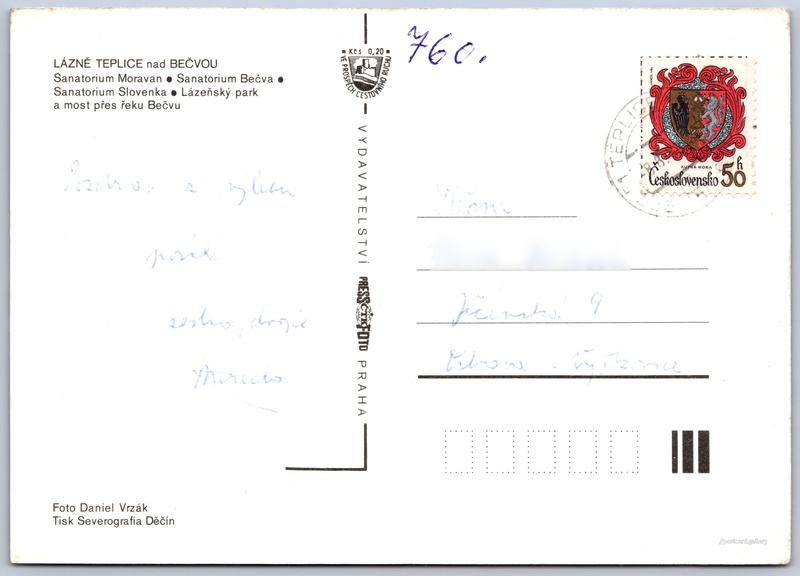 LÁZNĚ TEPLICE nad BEČVOU
Sanatorium Moravan ● Sanatorium Bečva ●
Sanatorium Slovenka ● Lázeňský park
a most přes řeku Bečvu
Pozdrav z výletu
posílá
Foto Daniel Vrzák
Tisk Severografia Děčín
Kčs 0,20
VE PROSPĚCH CESTOVNÍHO RUCHU
VYDAVATELSTVÍ
PRESSFOTO
ČTK
PRAHA
760.
KUTNÁ HORA
Československo 50 h
TEPLICE
9
Ostrava - Vítkovice